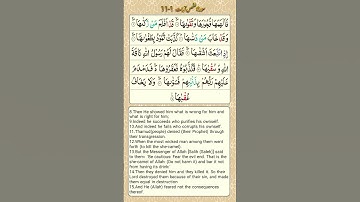 سورۃ شمس آیات 1-11
فَأَلْهَمَهَا فُجُورَهَا وَتَقْوَىٰهَا ۝ قَدْ أَفْلَحَ مَن زَكَّىٰهَا ۝
وَقَدْ خَابَ مَن دَسَّىٰهَا ۝ كَذَّبَتْ ثَمُودُ بِطَغْوَىٰهَا ۝
إِذِ ٱنۢبَعَثَ أَشْقَىٰهَا ۝ فَقَالَ لَهُمْ رَسُولُ ٱللَّهِ نَاقَةَ
ٱللَّهِ وَسُقْيَـٰهَا ۝ فَكَذَّبُوهُ فَعَقَرُوهَا ۝ فَدَمْدَمَ
عَلَيْهِمْ رَبُّهُم بِذَنۢبِهِمْ فَسَوَّىٰهَا ۝ وَلَا يَخَافُ
عُقْبَـٰهَا ۝
8.Then He showed him what is wrong for him and
what is right for him;
9.Indeed he succeeds who purifies his ownself.
10.And indeed he fails who corrupts his ownself.
11.Thamud(people) denied (their Prophet) through
their transgression.
12.When the most wicked man among them went
forth (to kill the she-camel).
13.But the Messenger of Allah [Salih (Saleh)] said
to them: Be cautious. Fear the evil end. That is the
she-camel of Allah (Do not harm it) and bar it not
from having its drink!
14.Then they denied him and they killed it. So their
Lord destroyed them because of their sin, and made
them equal in destruction
15.And He (Allah) feared not the consequences
thereof.